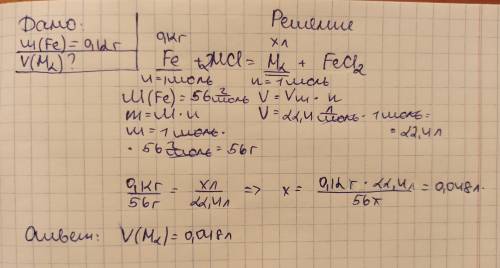 Дано:
Решение
m(Fe) = 0,12г
V(H₂)?
0,12г
xл
Fe + 2HCl = H₂ + FeCl₂
n=1моль
n=1моль
M(Fe) = 56 г/моль
V = Vm · n
m = M · n
V = 22,4 л/моль · 1 моль =
= 22,4л
m = 1 моль ·
· 56 г/моль = 56г
0,12г/56г = xл/22,4л => x = 0,12г · 22,4л/56г = 0,048л.
Ответ: V(H₂) = 0,048л